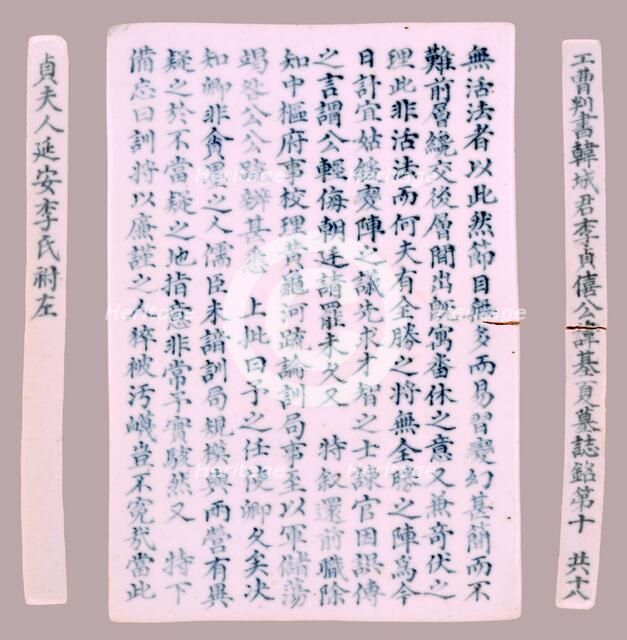 工曹判書韓城君李貞僖公諱基夏墓誌銘第十 共十八
無活法者以此然節目無多而易習變幻甚簡而不
難前層纔交後層間出旣寓畨休之意又兼奇伏之
理此非活法而何夫有全勝之將無全勝之陣爲今
日計宜姑緩變陣之議先求才智之士諫官因誤傳
之言謂公輕侮朝廷請罷未久又 特叙還前職除
知中樞府事校理黃龜河疏論訓局事至以軍儲蕩
竭咎公公疏辨甚悉 上批曰予之任後卿久矣决
知卿非貪墨之人儒臣未諳訓局規模與兩營有異
疑之於不當疑之地指意非常予實駭然又 特下
備忘曰訓將以廉謹之 猝被汚衊豈不寃哉當此
貞夫人延安李氏祔左
Heritage
Heritage
Heritage
Heritage
Heritage
Heritage